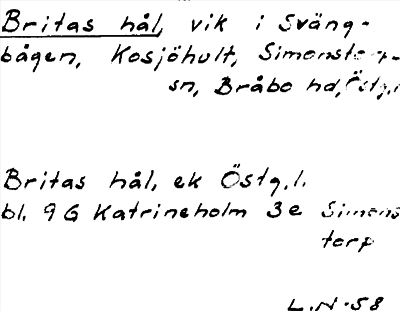 Britas hål, vik i Sväng-
bågen, Kosjöhult, Simonstorp-
sn, Bråbo hd, Östg.l
Britas hål, ek Östg.l.
bl. 9G Katrineholm 3e Simons
torp
L.N-58